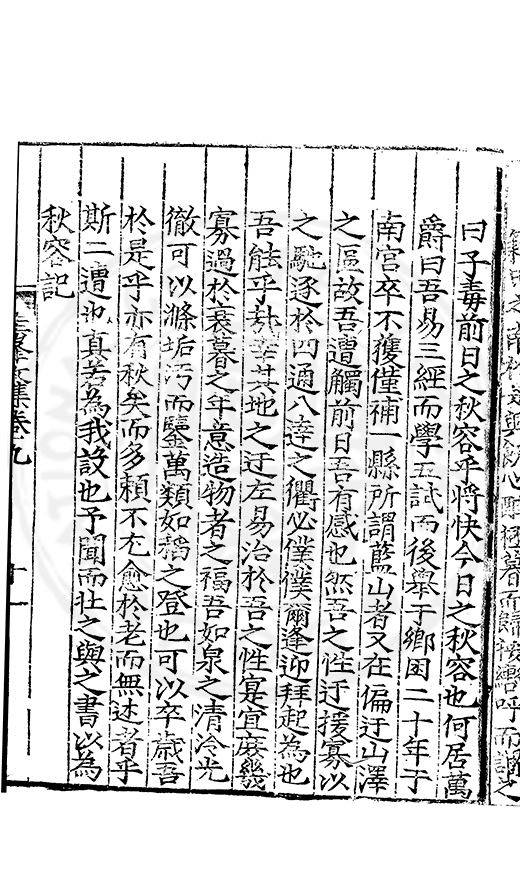 曰子毒前日之秋容乎將快今日之秋容也何居萬
爵曰吾易三經而學五試而後舉于鄉困二十年于
南宮卒不獲僅補一縣所謂藍山者又在偏迂山澤
之區故吾遭觸前日吾有感也然吾之性迂援寡以
之馳逐於四通八達之衢必僕僕爾逢迎拜起為也
吾能乎哉幸其地之迂左易治於吾之性寔宜庶幾
寡過於衰暮之年意造物者之福吾如泉之清冷光
徹可以滌垢污而鑒萬類如稻之登也可以卒歲吾
於是乎亦有秋矣而多賴不尤愈於老而無述者乎
斯二遭也真若為我設也予聞而壯之與之書以為
秋容記